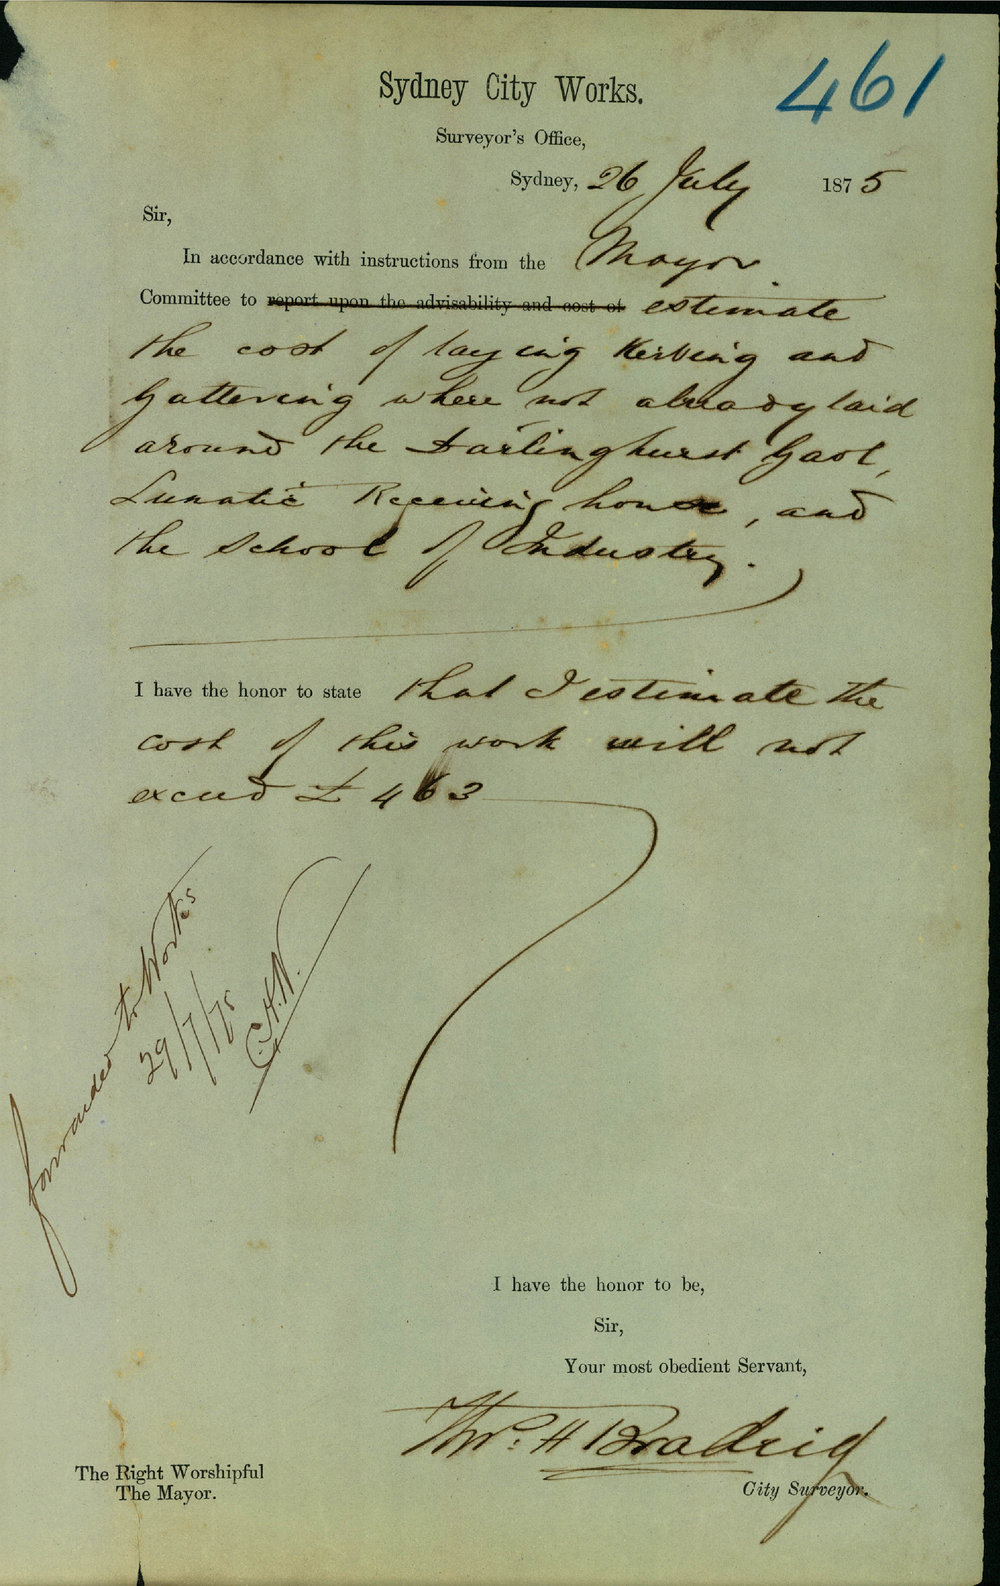 461
Sydney City Works.
Surveyor's Office,
Sydney, 26 July 1875
Sir,
In accordance with instructions from the Mayor
Committee to report upon the advisability and cost of estimate
the cost of laying Kerbing and
Guttering where not already laid
around the Darlinghurst Gaol,
Lunatic Receiving house, and
the School of Industry.
I have the honor to state that I estimate the
cost of this work will not
exceed £463
forwarded to Works
29/7/75
C.H.W.
I have the honor to be,
Sir,
Your most obedient Servant,
Thos. H Bradridg
City Surveyor.
The Right Worshipful
The Mayor.